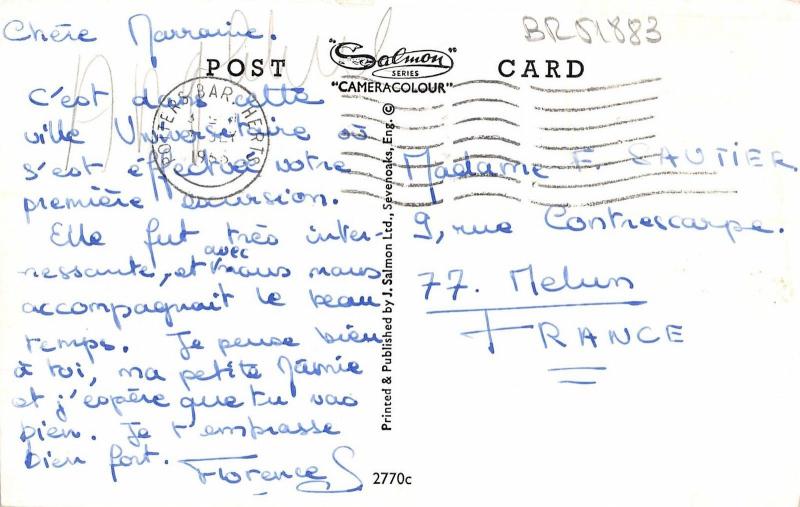 BR51883
Chère Marraine.
"Salmon"
SERIES
"CAMERACOLOUR"
POST CARD
POTTERS BAR. HERTS
C'est dans cette
ville Universitaire où
s'est effectuée notre
première excursion.
Elle fut très inter-
ressante, et avec nous
accompagnait le beau
temps. Je pense bien
à toi, ma petite Mamie
et j'espère que tu vas
bien. Je t'embrasse
bien fort. Florence S
Printed & Published by J. Salmon Ltd., Sevenoaks, Eng. ©
Madame F. GAUTIER
9, rue Contrescarpe.
77. Melun
FRANCE
2770c